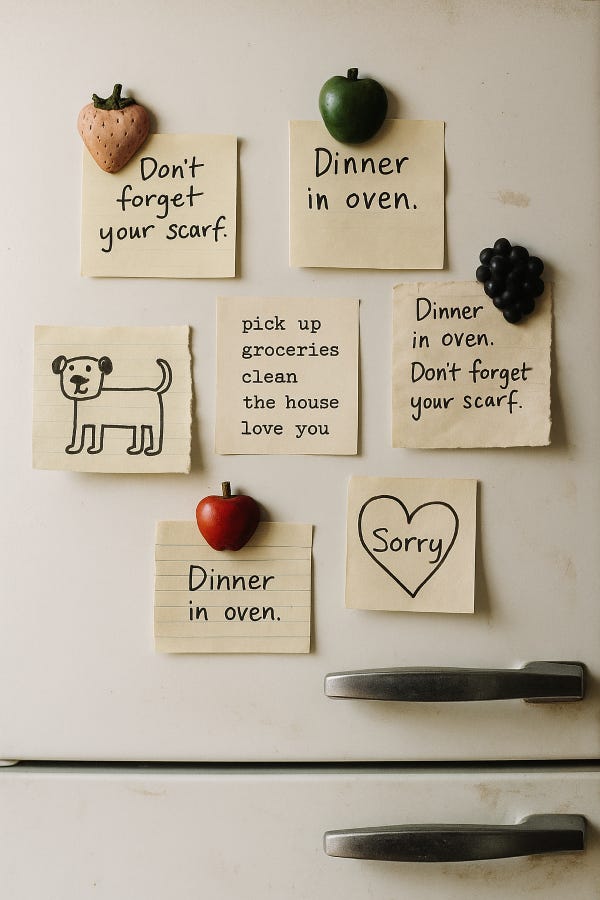 Don't
forget
your scarf.
Dinner
in oven.
pick up
groceries
clean
the house
love you
Dinner
in oven.
Don't forget
your scarf.
Dinner
in oven.
Sorry